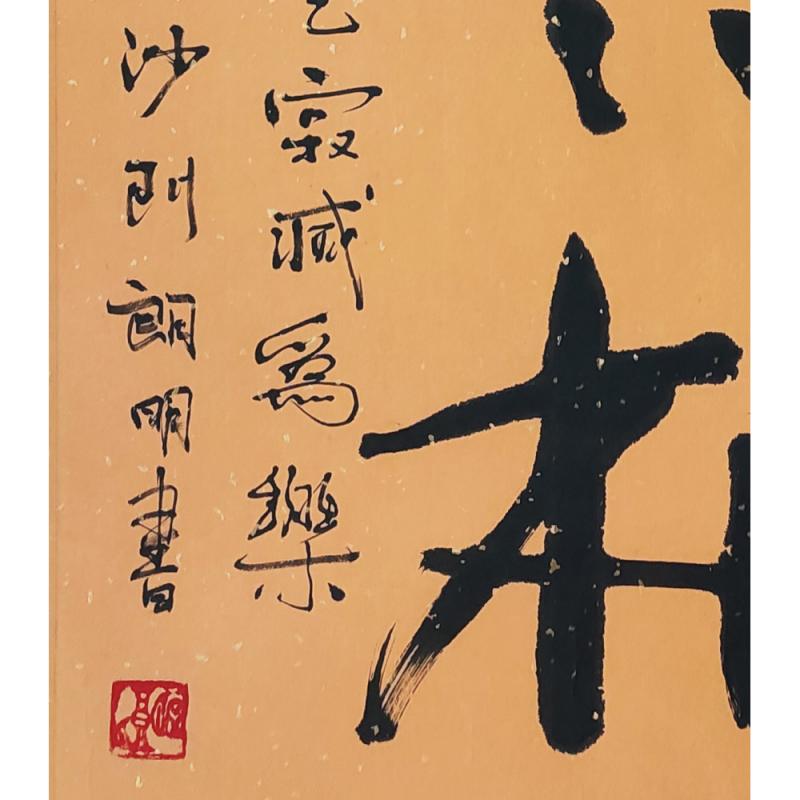 本
已寂滅為樂
沙門朗明書